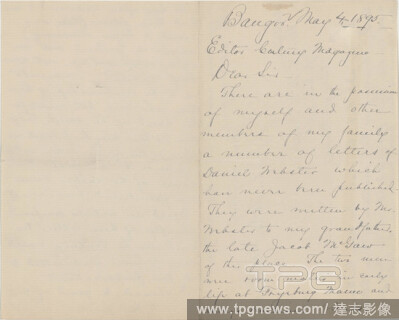 Bangor. May 4, 1895.
Editor Century Magazine
Dear Sir -
There are in the possession
of myself and other
members of my family
a number of letters of
Daniel Webster which
have never been published.
They were written by Mr.
Webster to my grandfather
the late Jacob McGaw
of this place. The two men
were room mates in early
life at Fryeburg Maine and
TPG
www.tpgimages.com / 達志影像